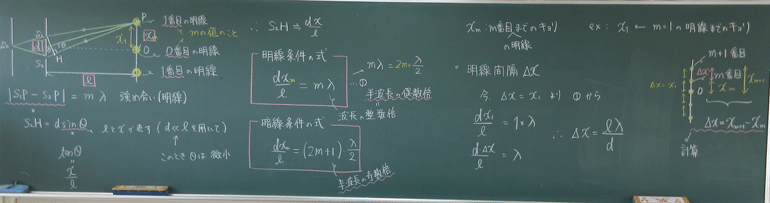 P 1番目の明線
mの値のこと
S₀
S₁
d
θ
H
S₂
x₁
O 0番目の明線
1番目の明線
l
|S₁P − S₂P| = mλ 強め合い(明線)
S₂H = d sinθ lとxで表す (d≪lを用いて)
このとき θは微小
tanθ
x/l
∴ S₂H ≒ dx/l
明線条件の式
dxₘ/l = mλ
mλ = 2m・λ/2
…①
半波長の偶数倍
波長の整数倍
暗線条件の式
dxₘ/l = (2m+1) λ/2
半波長の奇数倍
xₘ : m番目までのキョリ
の明線
ex : x₁ ← m=1の明線までのキョリ
・明線間隔 Δx
今、Δx = x₁ より ①から
dx₁/l = 1×λ
dΔx/l = λ
∴ Δx = lλ/d
m+1番目
Δx
m番目
Δx = x₁
O
xₘ
xₘ₊₁
Δx = xₘ₊₁ − xₘ
計算